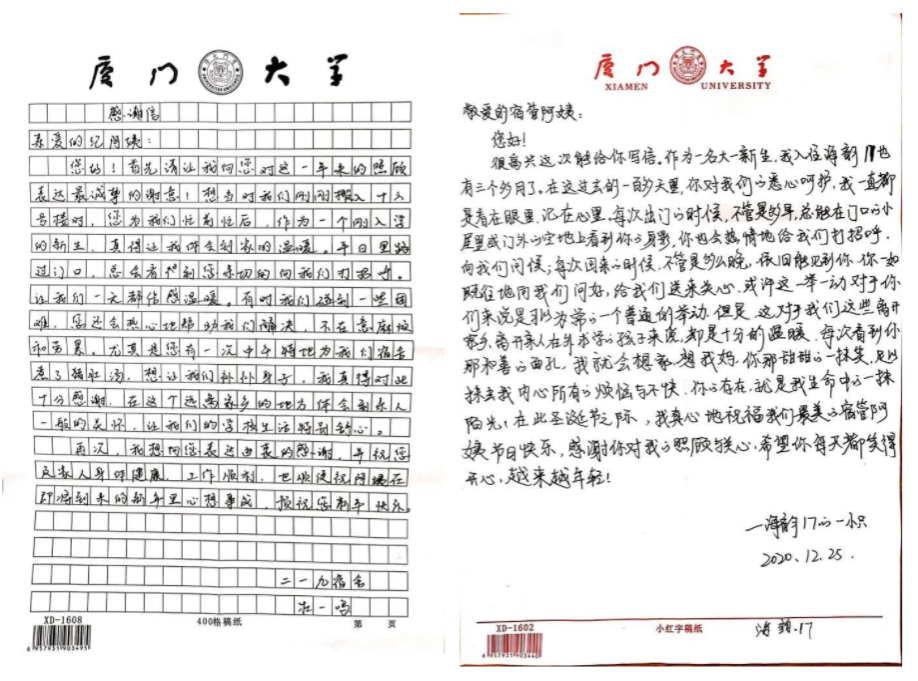 厦门大学
感谢信
亲爱的纪阿姨：
您好！首先请让我向您对这一年来的照顾
表达最诚挚的谢意！想当时我们刚刚搬入十六
号楼时，您为我们忙前忙后，作为一个刚入学
的新生，真得让我体会到家的温暖。平日里路
过门口，总会看到您亲切的向我们打招呼。
让我们一天都倍感温暖。有时我们碰到一些困
难，您还会热心地帮助我们解决，不在意麻烦
和劳累。尤其是您有一次中午特地为我们宿舍
煮了猪肚汤，想让我们补补身子，我真得对此
十分感谢，在这个远离家乡的地方体会到亲人
一般的关怀，让我们的学校生活特别舒心。
再次，我想向您表达由衷的感谢，并祝您
及家人身体健康，工作顺利，也顺便祝阿姨在
即将到来的新年里心想事成，预祝您新年快乐。
二一九宿舍
XD-1608
400格稿纸
第 页
6 957931 903495
厦门大学
XIAMEN UNIVERSITY
敬爱的宿管阿姨：
您好！
很高兴这次能给你写信。作为一名大一新生，我入住海韵17也
有三个多月了。在这过去的一百多天里，你对我们的悉心呵护，我一直都
是看在眼里，记在心里。每次出门的时候，不管是多早，总能在门口的小
屋里或门外的空地上看到你的身影，你也会热情地给我们打招呼，
向我们问候；每次回来的时候，不管是多么晚，依旧能见到你，你一如
既往地向我们问好，给我们送来关心，或许这一举动对于你
们来说是习以为常的一个普通的举动，但是，这对于我们这些离开
家乡，离开亲人在外求学的孩子来说，却是十分的温暖，每次看到你
那和善的面孔，我就会想家，想我妈，你那甜甜的一抹笑，足以
抹去我内心所有的烦恼与不快，你的存在，就是我生命中的一抹
阳光，在此圣诞节之际，我真心地祝福我们最美的宿管阿
姨节日快乐，感谢你对我的照顾与关心，希望你每天都笑得
开心，越来越年轻！
—海韵17的一小只
2020.12.25.
XD-1602
小红字稿纸
海韵.17
6 957931 903440